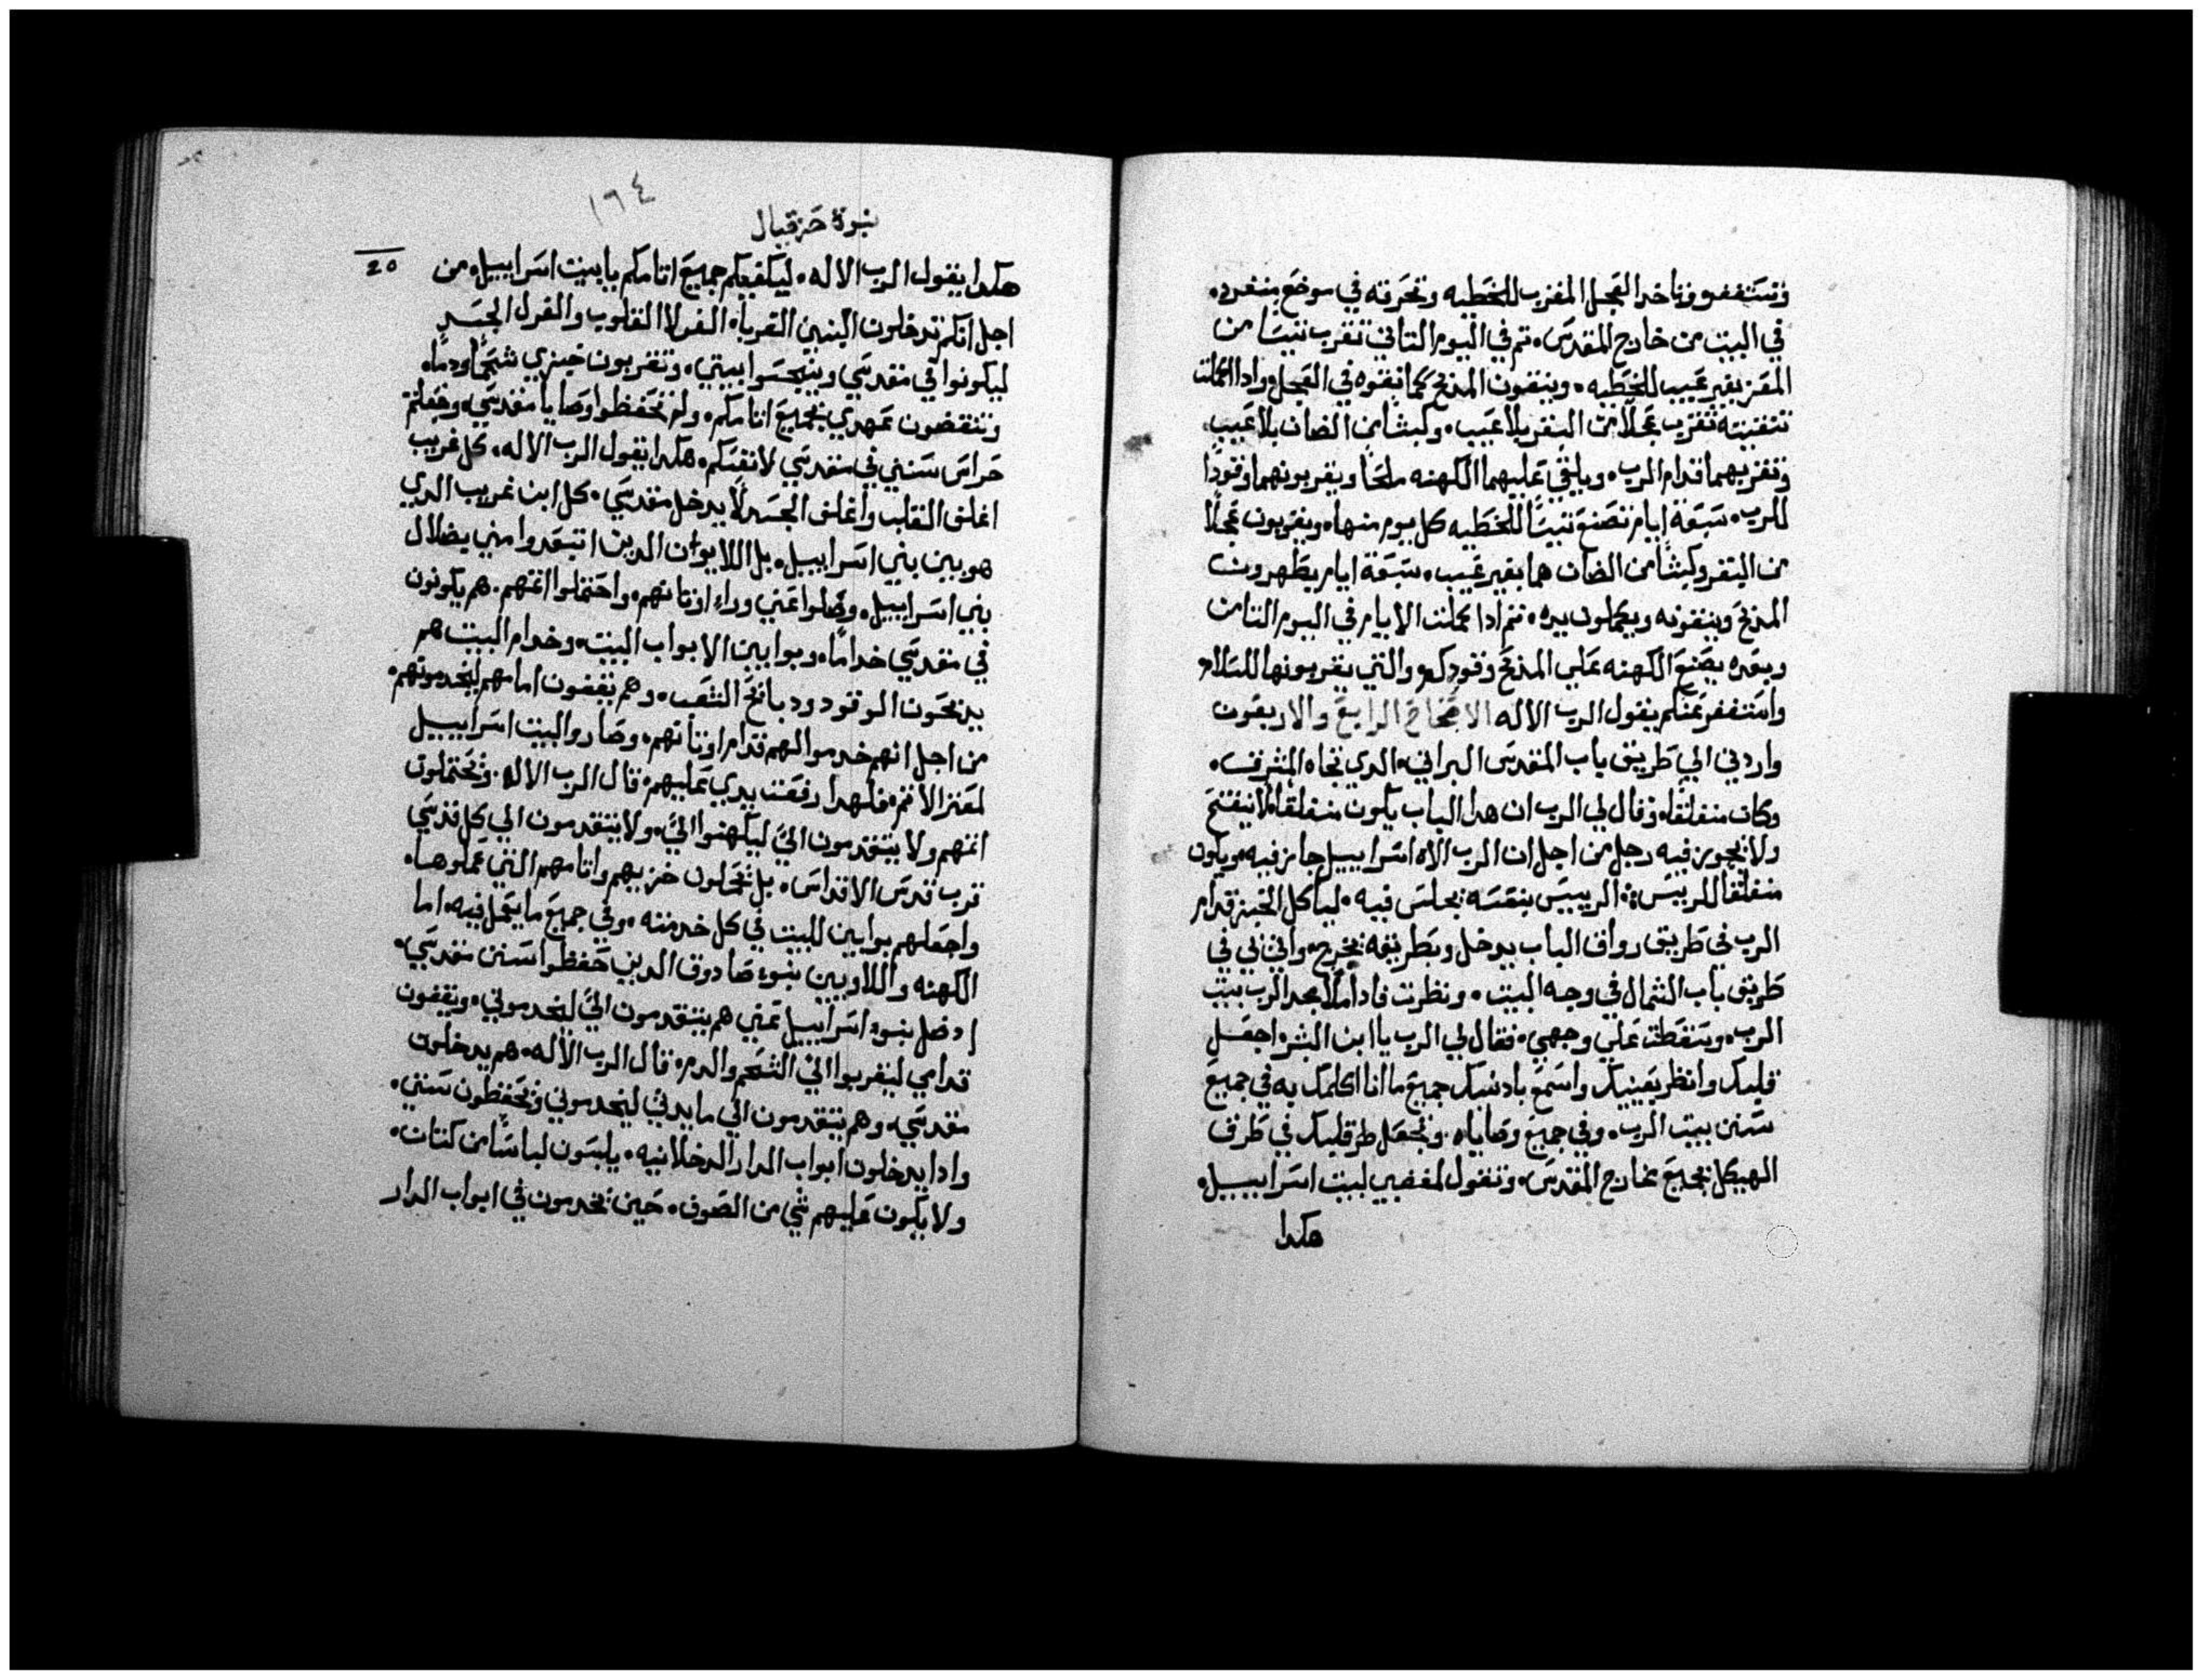 وتستغفره وتاخد العجل المقرب للخطيه وتحرقه في موضع منفرد.
في البيت من خارج المقدس. تم في اليوم التاني تقرب تيسا من
المعز بغير عيب للخطيه. وينقون المدبح كما نقوه في العجل. وادا اكملت
تنقيته تقرب عجلا من البقر بلا عيب. وكبشا من الضان بلا عيب.
وتقربهما قدام الرب. ويلقي عليهما الكهنه ملحا ويقربونهما وقودا
للرب. سبعة ايام تصنع تيسا للخطيه كل يوم منها. ويقربون عجلا
من البقر وكبشا من الضان هما بغير عيب. سبعة ايام يطهرون
المدبح وينقونه ويكملون يده. تم ادا كملت الايام في اليوم التامن
وبعده يصنع الكهنه علي المدبح وقودكم والتي يقربونها للسلامه
واستغفر عنكم يقول الرب الاله الاصحاح الرابع والاربعون
واردني الي طريق باب المقدس البراني. الدي تجاه المشرق.
وكان منغلقا. وقال لي الرب ان هدا الباب يكون منغلقا. لا ينفتح
ولا يجوز فيه رجل من اجل ان الرب الاه اسراييل جايز فيه. ويكون
منغلقا للرييس. الرييس بنفسه يجلس فيه. لياكل الخبز قدام
الرب في طريق رواق الباب يدخل وبطريقه يخرج. واتي بي في
طريق باب الشمال في وجه البيت. ونظرت فادا ملا مجد الرب بيت
الرب. وسقطت علي وجهي. فقال لي الرب يا ابن البشر اجعل
قلبك وانظر بعينيك واسمع بادنيك جميع ما انا اكلمك به في جميع
سنن بيت الرب. وفي جميع وصاياه. وتجعل قلبك في طرق
الهيكل بجميع مخارج المقدس. وتقول لمغضبي لبيت اسراييل.
هكدا
١٦٤
نبوة حزقيال
20
هكدا يقول الرب الاله. ليكفيكم جميع اتامكم يا بيت اسراييل. من
اجل انكم تدخلون البنين الغربا. الغرلا القلوب والغرل الجسد
ليكونوا في مقدسي وينجسوا بيتي. وتقربون خبزي شحما ودما.
وتنقضون عهدي بجميع اتامكم. ولم تحفظوا وصايا مقدسي. وجعلتم
حراس سنني في مقدسي لانفسكم. هكدا يقول الرب الاله. كل غريب
اغلف القلب واغلف الجسد لا يدخل مقدسي. كل ابن غريب الدي
هو بين بني اسراييل. بل اللايوان الدين ابتعدوا مني بضلال
بني اسراييل. وضلوا عني وراء اوتانهم. واحتملوا اتمهم. هم يكونون
في مقدسي خداما. وبوابين الابواب البيت. وخدام البيت هم
يدبحون الوقود ودبايح الشعب. وهم يقفون امامهم ليخدمونهم.
من اجل انهم خدموا لهم قدام اوتانهم. وصاروا لبيت اسراييل
لمعتر الاتم. فلهدا رفعت يدي عليهم. قال الرب الاله. وتحتملون
اتمهم ولا يتقدمون الي ليكهنوا الي. ولا يتقدمون الي كل قدسي
قرب قدس الاقداس. بل يحملون خزيهم واتامهم التي عملوها.
واجعلهم بوابين للبيت في كل خدمته. وفي جميع ما يعمل فيه. اما
الكهنه واللاويين بنوء صادوق الدين حفظوا سنن مقدسي.
اد ضل بنوء اسراييل عني هم يتقدمون الي ليخدموني. ويقفون
قدامي ليقربوا الي الشحم والدم. قال الرب الاله. هم يدخلون
مقدسي. وهم يتقدمون الي مايدتي ليخدموني وتحفظون سنني.
وادا يدخلون ابواب الدار الدخلانيه. يلبسون لباسا من كتان.
ولا يكون عليهم شي من الصوف. حين يخدمون في ابواب الدار